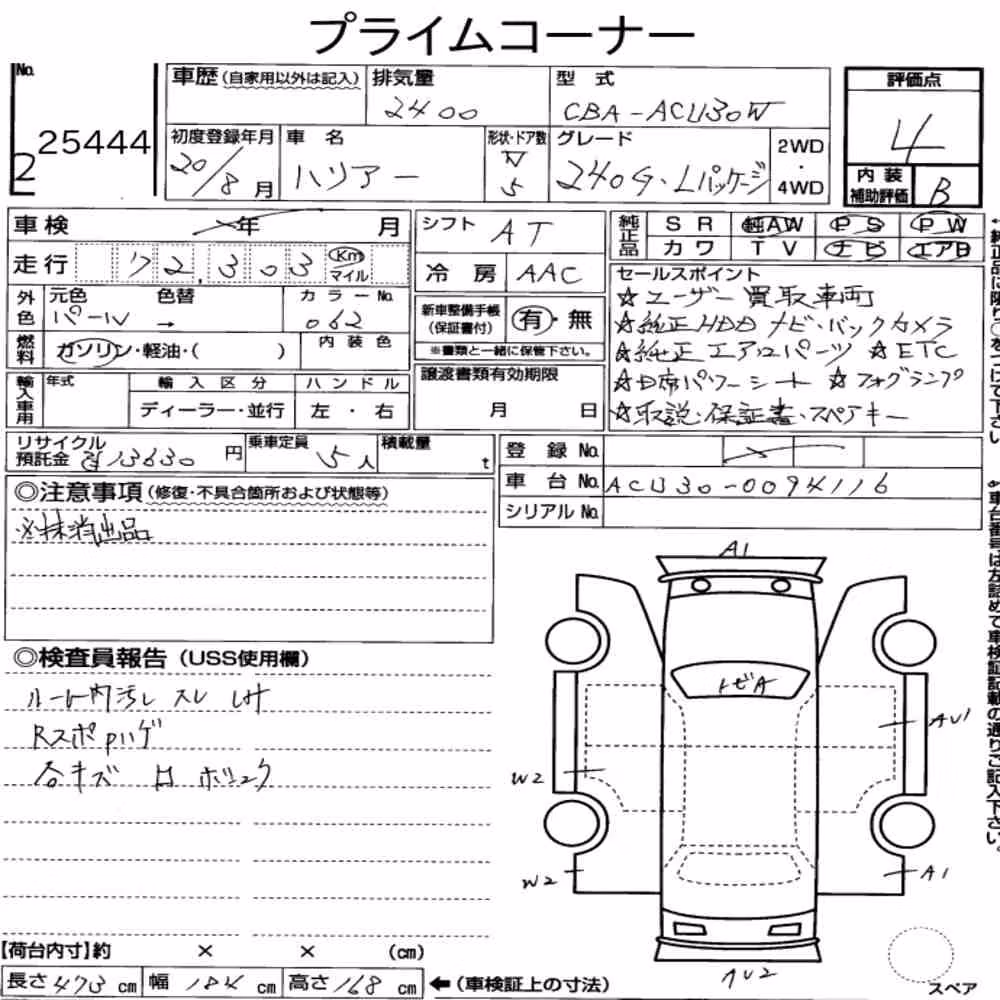 プライムコーナー
No.
2 25444
車歴 (自家用以外は記入)
排気量
2400
型 式
CBA-ACU30W
評価点
4
初度登録年月
20/8月
車 名
ハリアー
形状・ドア数
W
5
グレード
240G・Lパッケージ
2WD
・
4WD
内装
補助評価
B
車検 年 月
シフト AT
純正品
SR 純AW PS PW
カワ TV ナビ エアB
走行 72,303 Km マイル
冷房 AAC
セールスポイント
☆ユーザー買取車両
☆純正HDDナビ・バックカメラ
☆純正エアロパーツ ☆ETC
☆D席パワーシート ☆フォグランプ
☆取説・保証書・スペアキー
外色
元色 色替 カラーNo.
パール → 062
新車整備手帳
(保証書付)
有・無
※書類と一緒に保管下さい。
燃料
ガソリン・軽油・( )
内装色
輸入車用
年式 輸入区分 ハンドル
ディーラー・並行 左・右
譲渡書類有効期限
月 日
リサイクル
預託金 13630円
乗車定員 5人
積載量 t
登録 No.
車台 No. ACU30-0094116
シリアル No.
◎注意事項 (修復・不具合箇所および状態等)
※抹消出品
◎検査員報告 (USS使用欄)
ルーム内汚レ スレ
Rスポpハゲ
各キズ
A1
トビA
AU1
W2
W2
A1
スペア
【荷台内寸】約 × × (cm)
長さ 473 cm 幅 184 cm 高さ 168 cm ←(車検証上の寸法)
↑純正品に限り○をつけて下さい
車台番号は左詰めで車検証記載の通りご記入下さい。